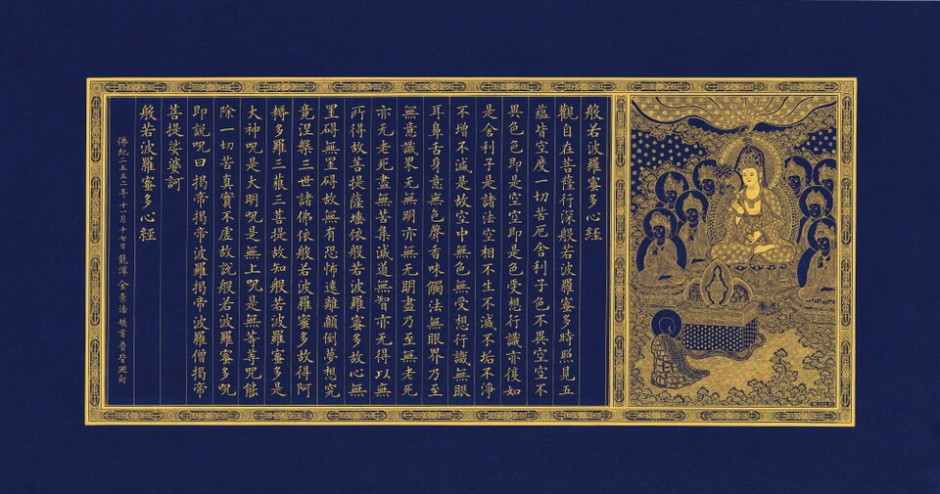 般若波羅蜜多心経
觀自在菩薩行深般若波羅蜜多時照見五
蘊皆空度一切苦厄舍利子色不異空空不
異色色即是空空即是色受想行識亦復如
是舍利子是諸法空相不生不滅不垢不淨
不增不減是故空中無色無受想行識無眼
耳鼻舌身意無色聲香味觸法無眼界乃至
無意識界无無明亦無无明盡乃至無老死
亦无老死盡無苦集滅道無智亦无得以無
所得故菩提薩埵依般若波羅蜜多故心無
罣碍無罣碍故無有恐怖遠離顛倒夢想究
竟涅槃三世諸佛依般若波羅蜜多故得阿
耨多羅三藐三菩提故知般若波羅蜜多是
大神呪是大明呪是無上呪是無等等呪能
除一切苦真實不虛故說般若波羅蜜多呪
即説呪曰揭帝揭帝波羅揭帝波羅僧揭帝
菩提娑婆訶
般若波羅蜜多心経
佛紀二五五二年十一月十七日 龍潭 金景浩